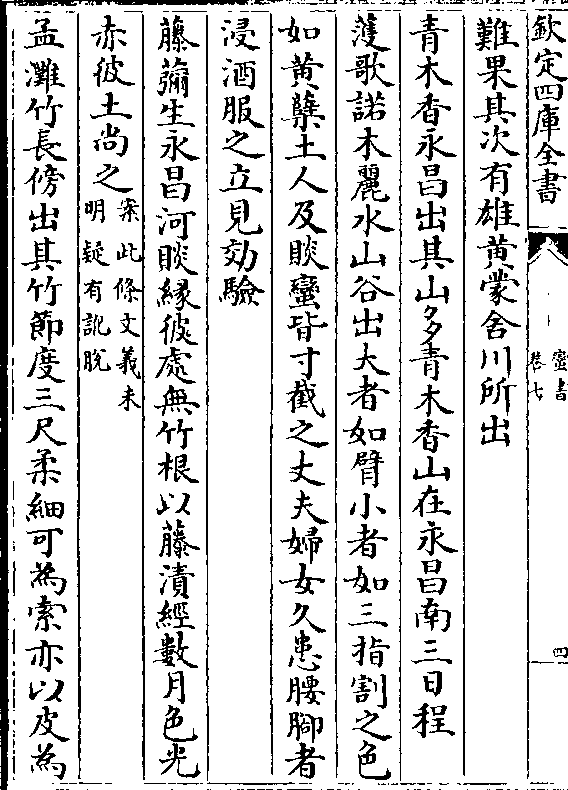 欽定四庫全書
蠻書
卷七
四
難果其次有雄黄蒙舍川所出
青木香永昌出其山多青木香山在永昌南三日程
䕶歌諾木麗水山谷出大者如臂小者如三指割之色
如黄蘖土人及賧蠻皆寸截之丈夫婦女久患腰脚者
浸酒服之立見効驗
藤蘜生永昌河賧緣彼處無竹根以藤漬經數月色光
赤彼土尚之案此條文義未
明疑有訛脱
孟灘竹長傍出其竹節度三尺柔細可為索亦以皮為